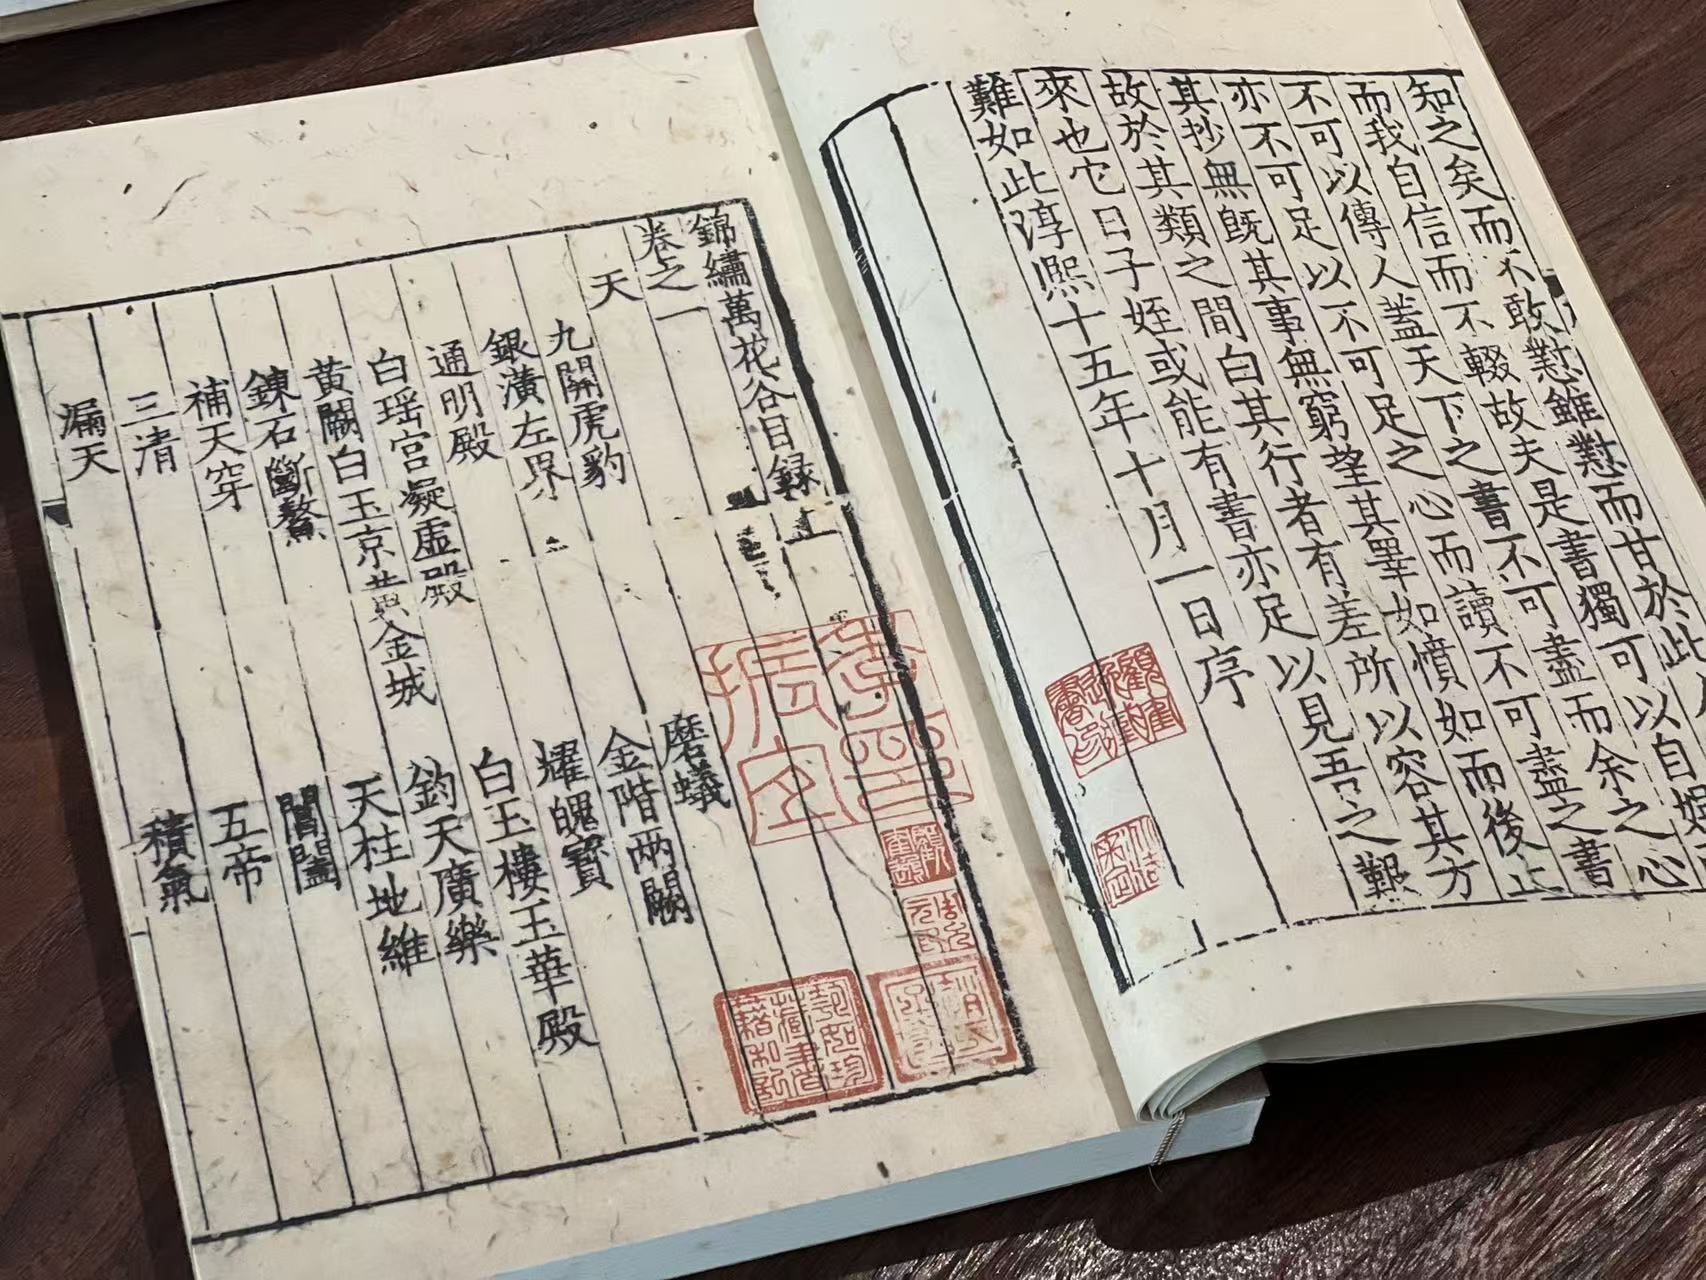 知之矣而不敢懟雖懟而甘於此
而我自信而不輟故夫是書獨可以自娛
不可以傳人蓋天下之書不可盡而余之心
亦不可足以不可足之心而讀不可盡之書
其抄無既其事無窮望其睪如憤如而後止
故於其類之間白其行者有差所以容其方
來也它日子姪或能有書亦足以見吾之艱
難如此淳熙十五年十月一日序
錦繡萬花谷目録上
卷之一
天
九關虎豹 磨蟻
銀潢左界 金階兩闕
通明殿 耀魄寶
白瑶宮凝虛殿 白玉樓玉華殿
黃闕白玉京黃金城 鈞天廣樂
鍊石斷鰲 天柱地維
補天穿 閶闔
三清 五帝
漏天 積氣
季印
振宜